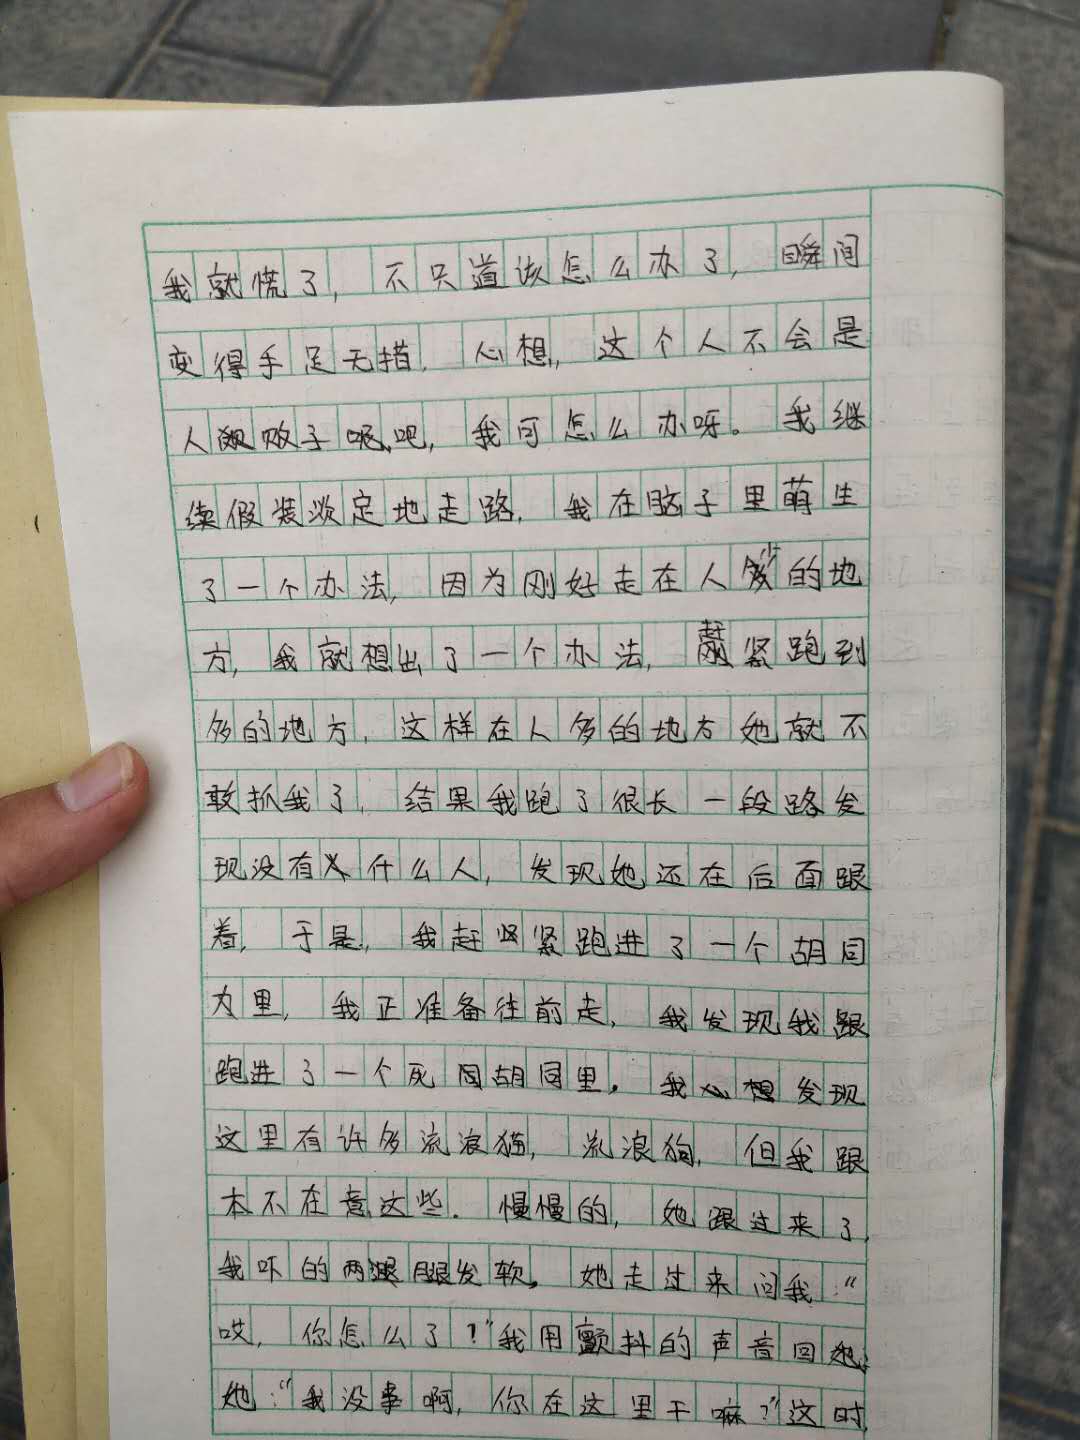 我就慌了，不只道该怎么办了，瞬间
变得手足无措，心想，这个人不会是
人贩子呢吧，我可怎么办呀。我继
续假装淡定地走路，我在脑子里萌生
了一个办法，因为刚好走在人少的地
方，我就想出了一个办法，赶紧跑到
多的地方，这样在人多的地方她就不
敢抓我了，结果我跑了很长一段路发
现没有什么人，发现她还在后面跟
着，于是，我赶紧跑进了一个胡同
里，我正准备往前走，我发现我
跑进了一个死胡同里。我发现
这里有许多流浪猫，流浪狗，但我跟
本不在意这些。慢慢的，她跟过来了，
我吓的两腿发软。她走过来问我：“
哎，你怎么了？”我用颤抖的声音回
她：“我没事啊，你在这里干嘛？”这时，